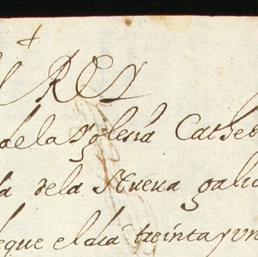 de la Yglesia Cathe
de la Nueva galic
que el dia treinta y un